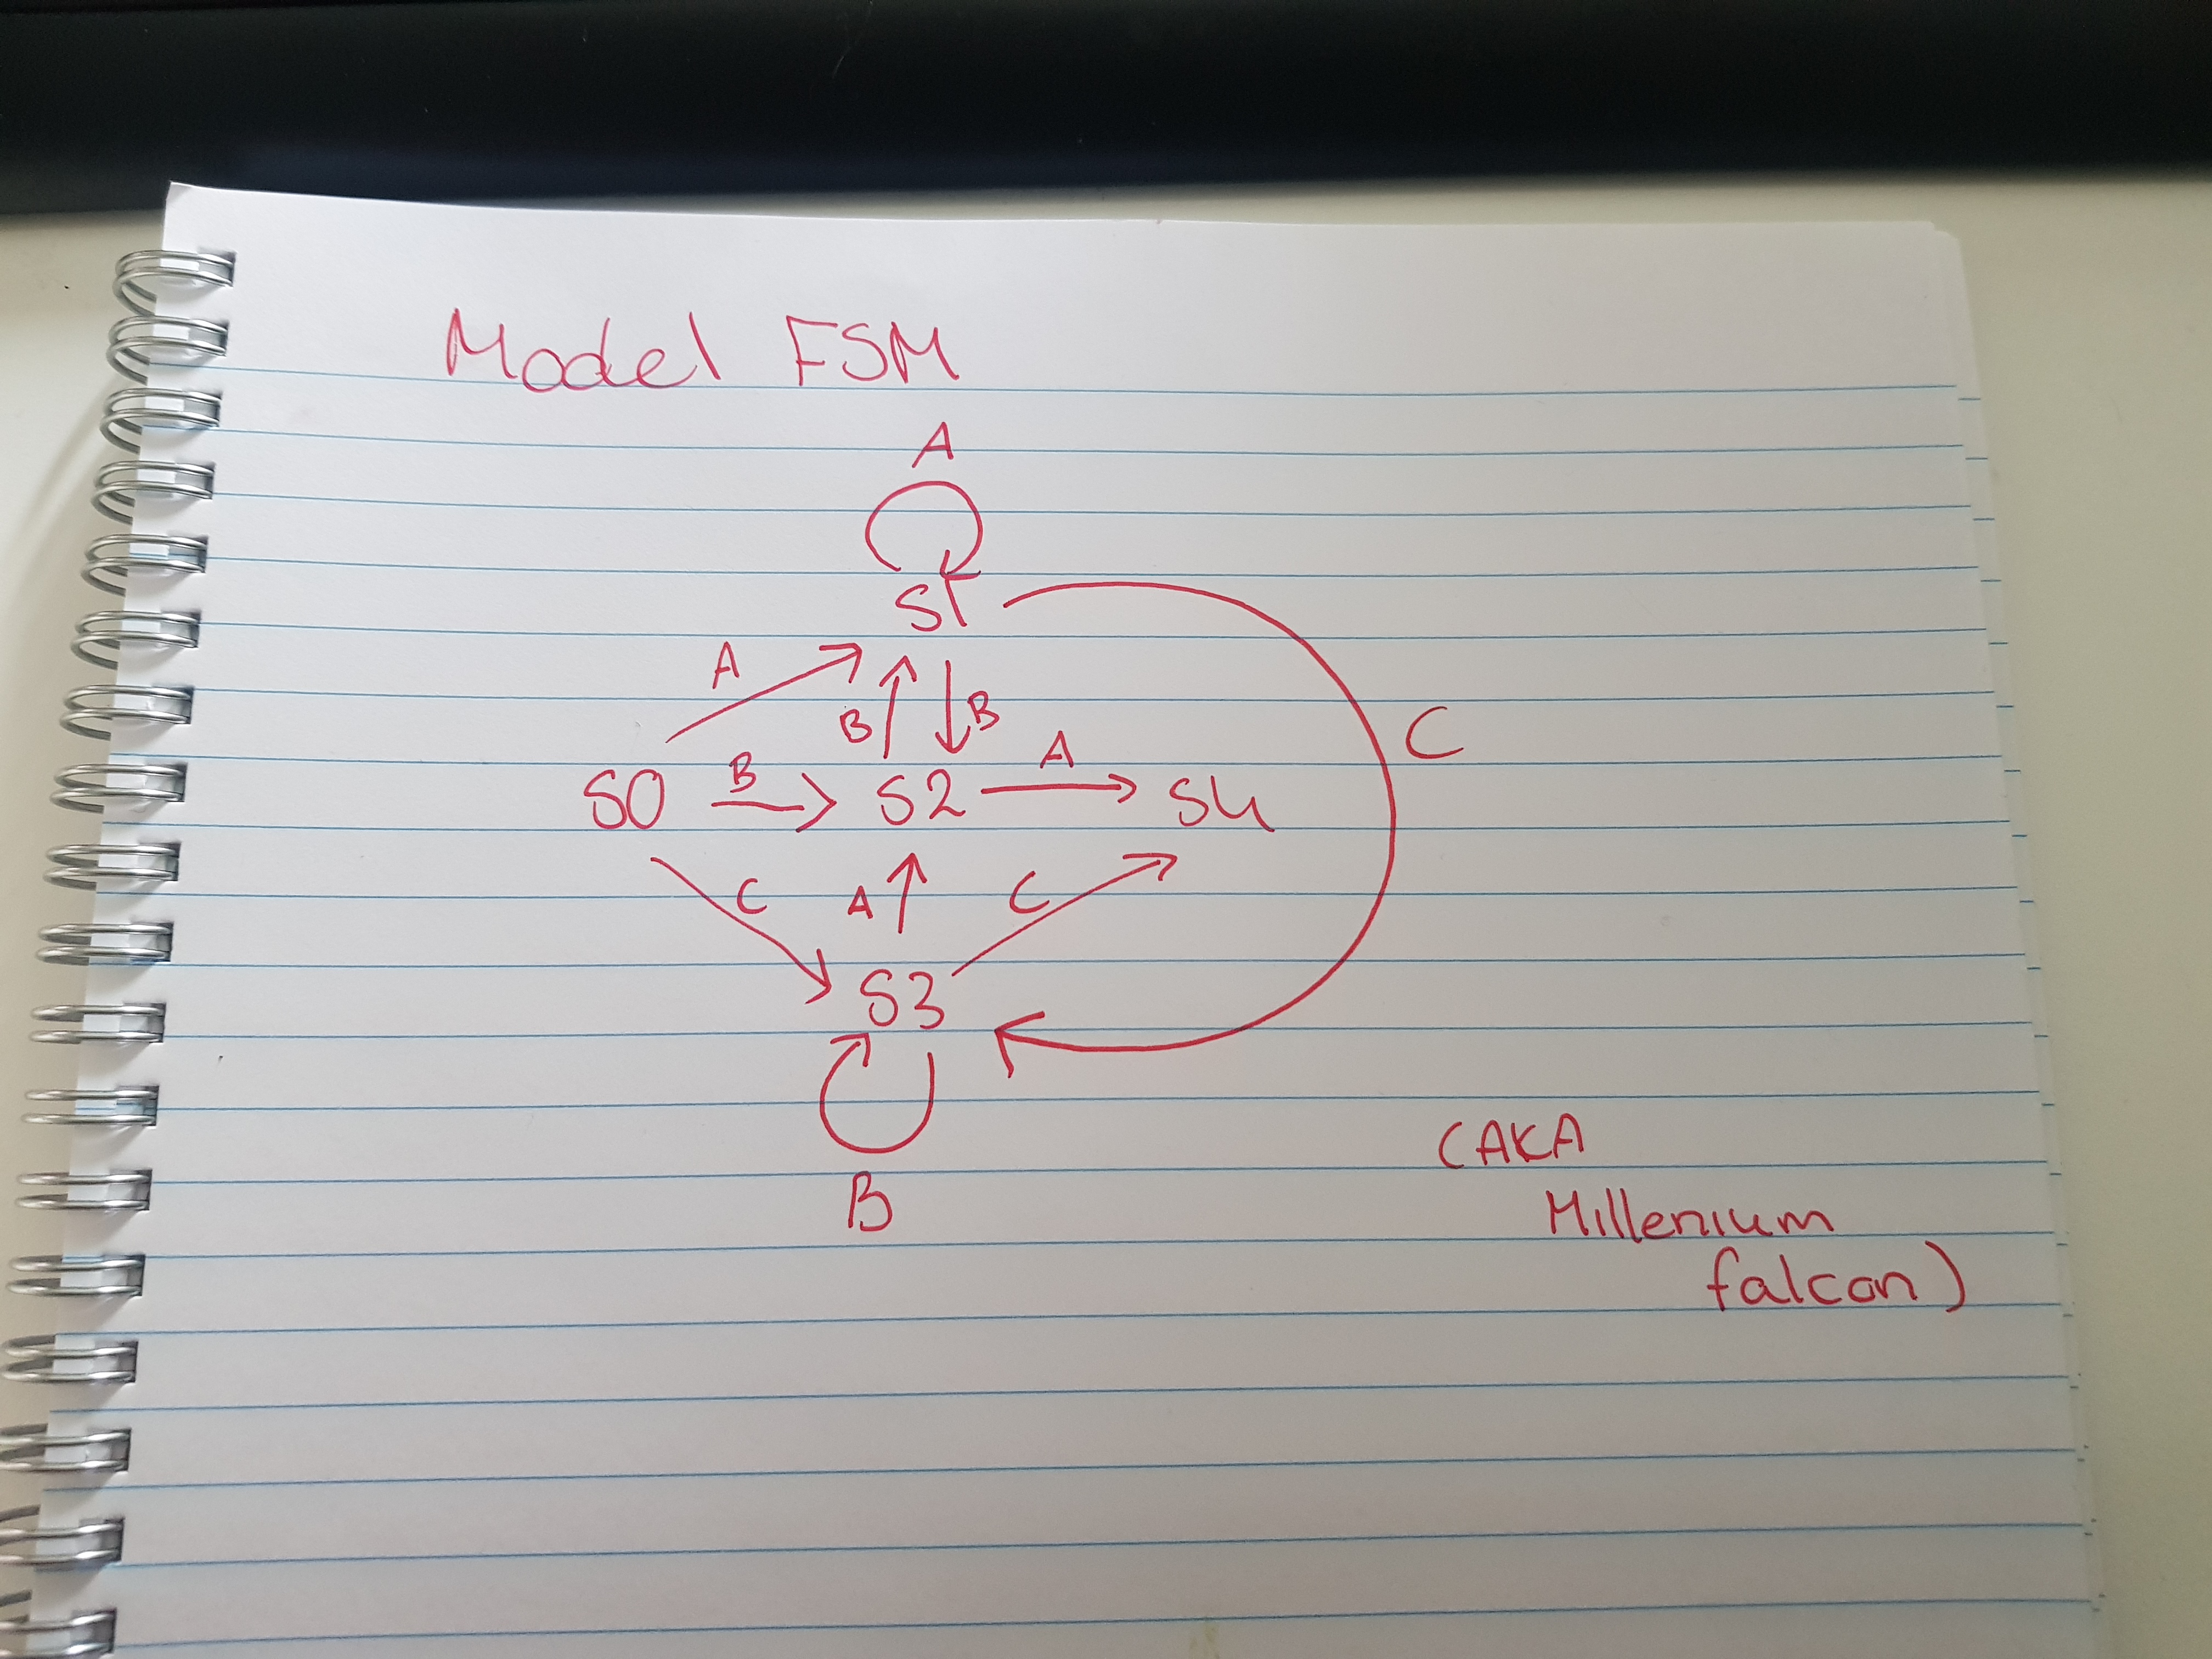 Model FSM
A
S1
A
B
B
S0
B
S2
A
S4
C
A
C
C
S3
B
(AKA
Millenium
falcon)